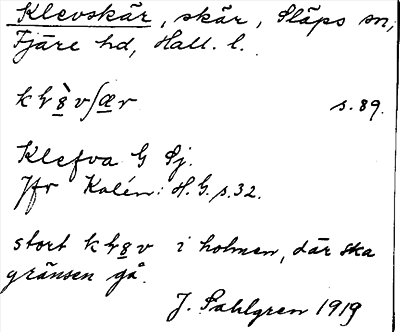 Klevskär, skär, Släps sn,
Fjäre hd, Hall. l.
s. 89.
Klefva G Sj.
Jfr Kalén: H. G. s. 32.
stort i holmen, där ska
gränsen gå.
J. Sahlgren 1919